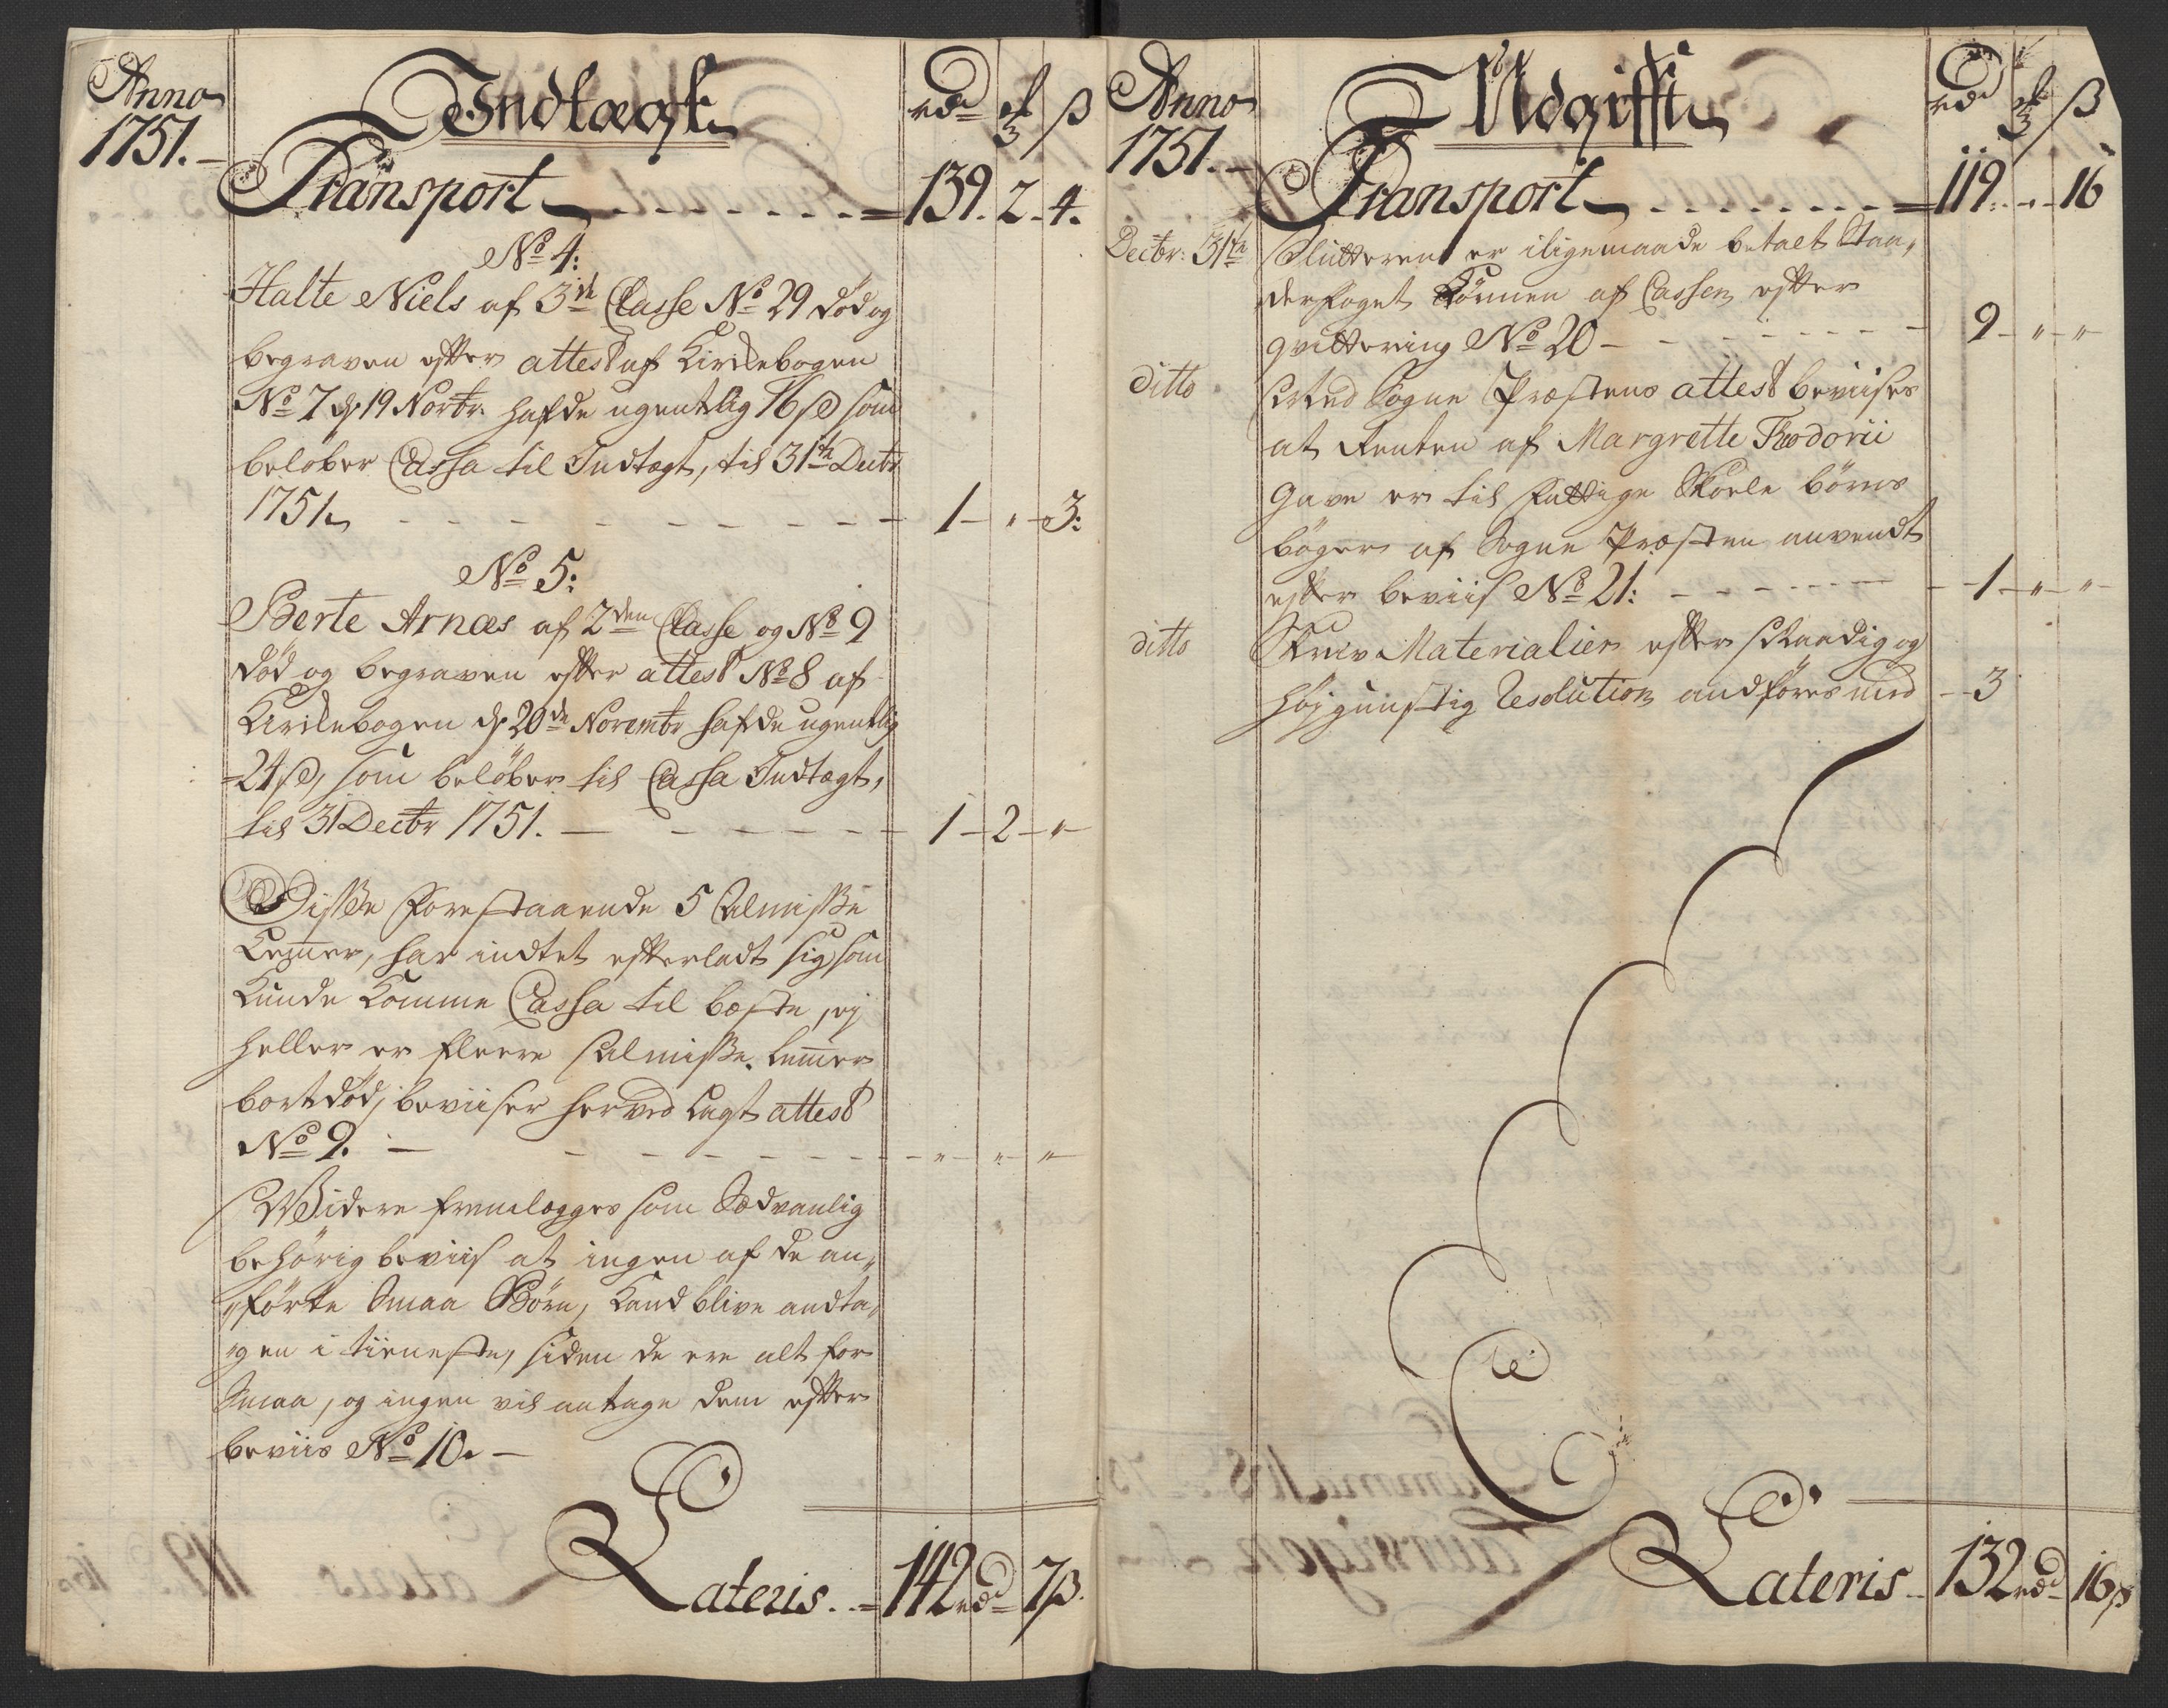 Anno
1751.
Indtægt
rd mk ß
Transport 139. 2. 4.
No 4:
Halte Niels af 3de Classe No 29 död og
begraven efter attest af Kirkebogen
No 7 d. 19 Novbr. hafde ugentlig 16 ß som
belöber Cassa til Indtægt, til 31te Decbr
1751 1 " 3:
No 5:
Berte Arnæs af 2den Classe og No 9
död og begraven efter attest No 8 af
Kirkebogen d. 20de Novembr hafde ugentlig
24 ß, som belöber til Cassa Indtægt,
til 31 Decbr 1751. 1 2 "
Disse forestaaende 5 Almisse
Lemmer, har indtet efterladt sig som
kunde komme Cassa til beste, ej
heller er fleere Almisse Lemmer
bortdöd, beviiser herved lagt attest
No 9. " " "
Widere fremlægges som Sædvanlig
behörig beviis at ingen af de an„
„förte Smaa Börn, kand blive andta„
„gen i tieneste, siden de ere alt for
Smaa, og ingen vil antage dem efter
beviis No 10.
Lateris 142 rd 7 ß.
Anno
1751.
Udgifft
rd mk ß
Transport 119. 16
Decbr: 31te Slutteren er iligemaade betalt Staa„
derfoget Lönnen af Cassen efter
qvittering No 20 9 " "
ditto Med Sogne Præstens attest beviises
at Renten af Margrette Theodorii
Gave er til fattige Skoele börns
böger af Sogne Præsten anvendt
efter beviis No 21: 1 " "
ditto Skriv Materialier efter naadig og
höjgunstig Resolution andföres med 3
Lateris 132 rd 16 ß